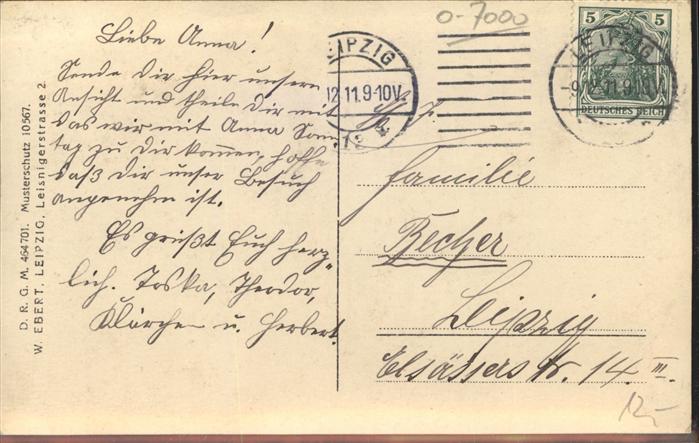 Liebe Anna!
Sende Dir hier unsere
Ansicht und theile Dir mit
das wir mit Anna Sonn
tag zu Dir kommen, hoffe
daß Dir unser Besuch
angenehm ist.
Es grüßt Euch herz=
lich. Toska, Theodor,
Klärchen u. Herbert.
D. R. G. M. 464701. Musterschutz 10567.
W. EBERT, LEIPZIG, Leisnigerstrasse 2.
0-7000
LEIPZIG
12.11.9-10V.
LEIPZIG
5 5
DEUTSCHES REICH
Familie
Becher
Leipzig
Elsässerstr. 14. III.
12,-